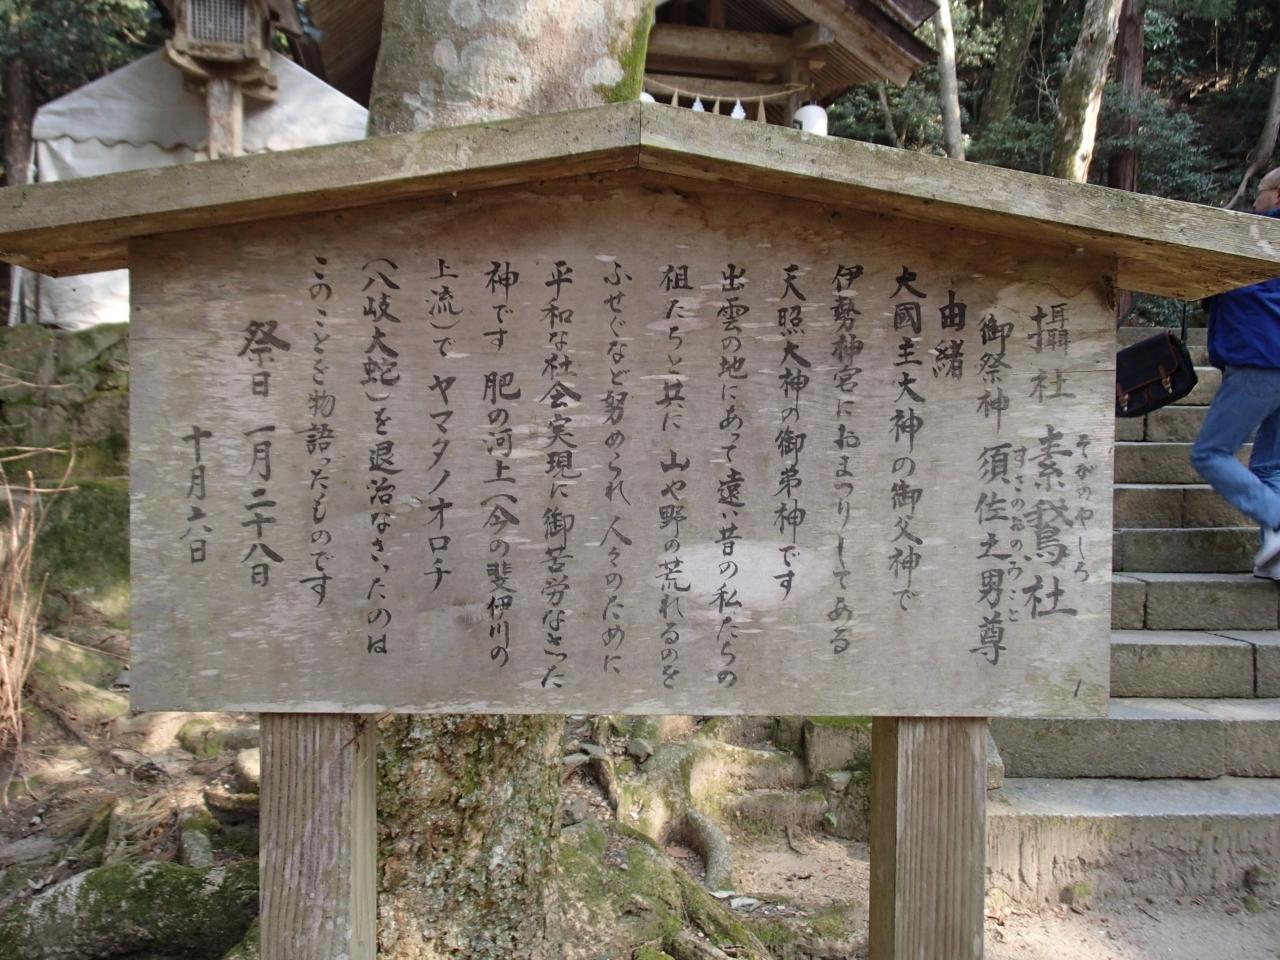 攝社 素鵞社
そがのやしろ
御祭神 須佐之男尊
すさのおのみこと
由緒
大國主大神の御父神で
伊勢神宮におまつりしてある
天照大神の御弟神です
出雲の地にあって遠い昔の私たちの
祖たちと共に 山や野の荒れるのを
ふせぐなど努められ 人々のために
平和な社会実現に御苦労なさった
神です 肥の河上(今の斐伊川の
上流)で ヤマタノオロチ
(八岐大蛇)を退治なさったのは
このことを物語ったものです
祭日 一月二十八日
十月六日